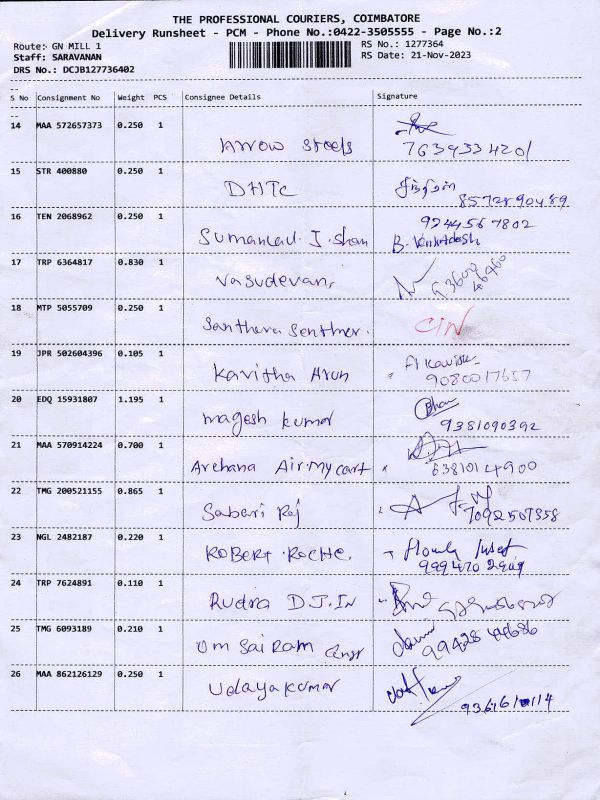 THE PROFESSIONAL COURIERS, COIMBATORE
Delivery Runsheet - PCM - Phone No.:0422-3505555 - Page No.:2
Route: GN MILL 1
RS No.: 1277364
Staff: SARAVANAN
RS Date: 21-Nov-2023
DRS No.: DCJB127736402
--
S No Consignment No Weight PCS Consignee Details Signature
--
14 MAA 572657373 0.250 1
Arrow Steels 7639334201
15 STR 400880 0.250 1
DHTC 8572890489
16 TEN 2068962 0.250 1 9244567802
Sumanlal J. Shan B. Venkatesh
17 TRP 6364817 0.830 1
Vasudevan,
18 MTP 5055709 0.250 1
Santhera Senther.
19 JPR 502604396 0.105 1
Kavitha Arun 9080017657
20 EDQ 15931807 1.195 1
Magesh Kumar 9381090392
21 MAA 570914224 0.700 1
Archana Air.My cart 6381014900
22 TMG 200521155 0.865 1
Sabari Raj 7092507358
23 NGL 2482187 0.220 1
ROBERT.ROCHE.
24 TRP 7624891 0.110 1
Rudra D.J.IN
25 TMG 6093189 0.210 1
Om Sai Ram
26 MAA 862126129 0.250 1
Udaya Kumar